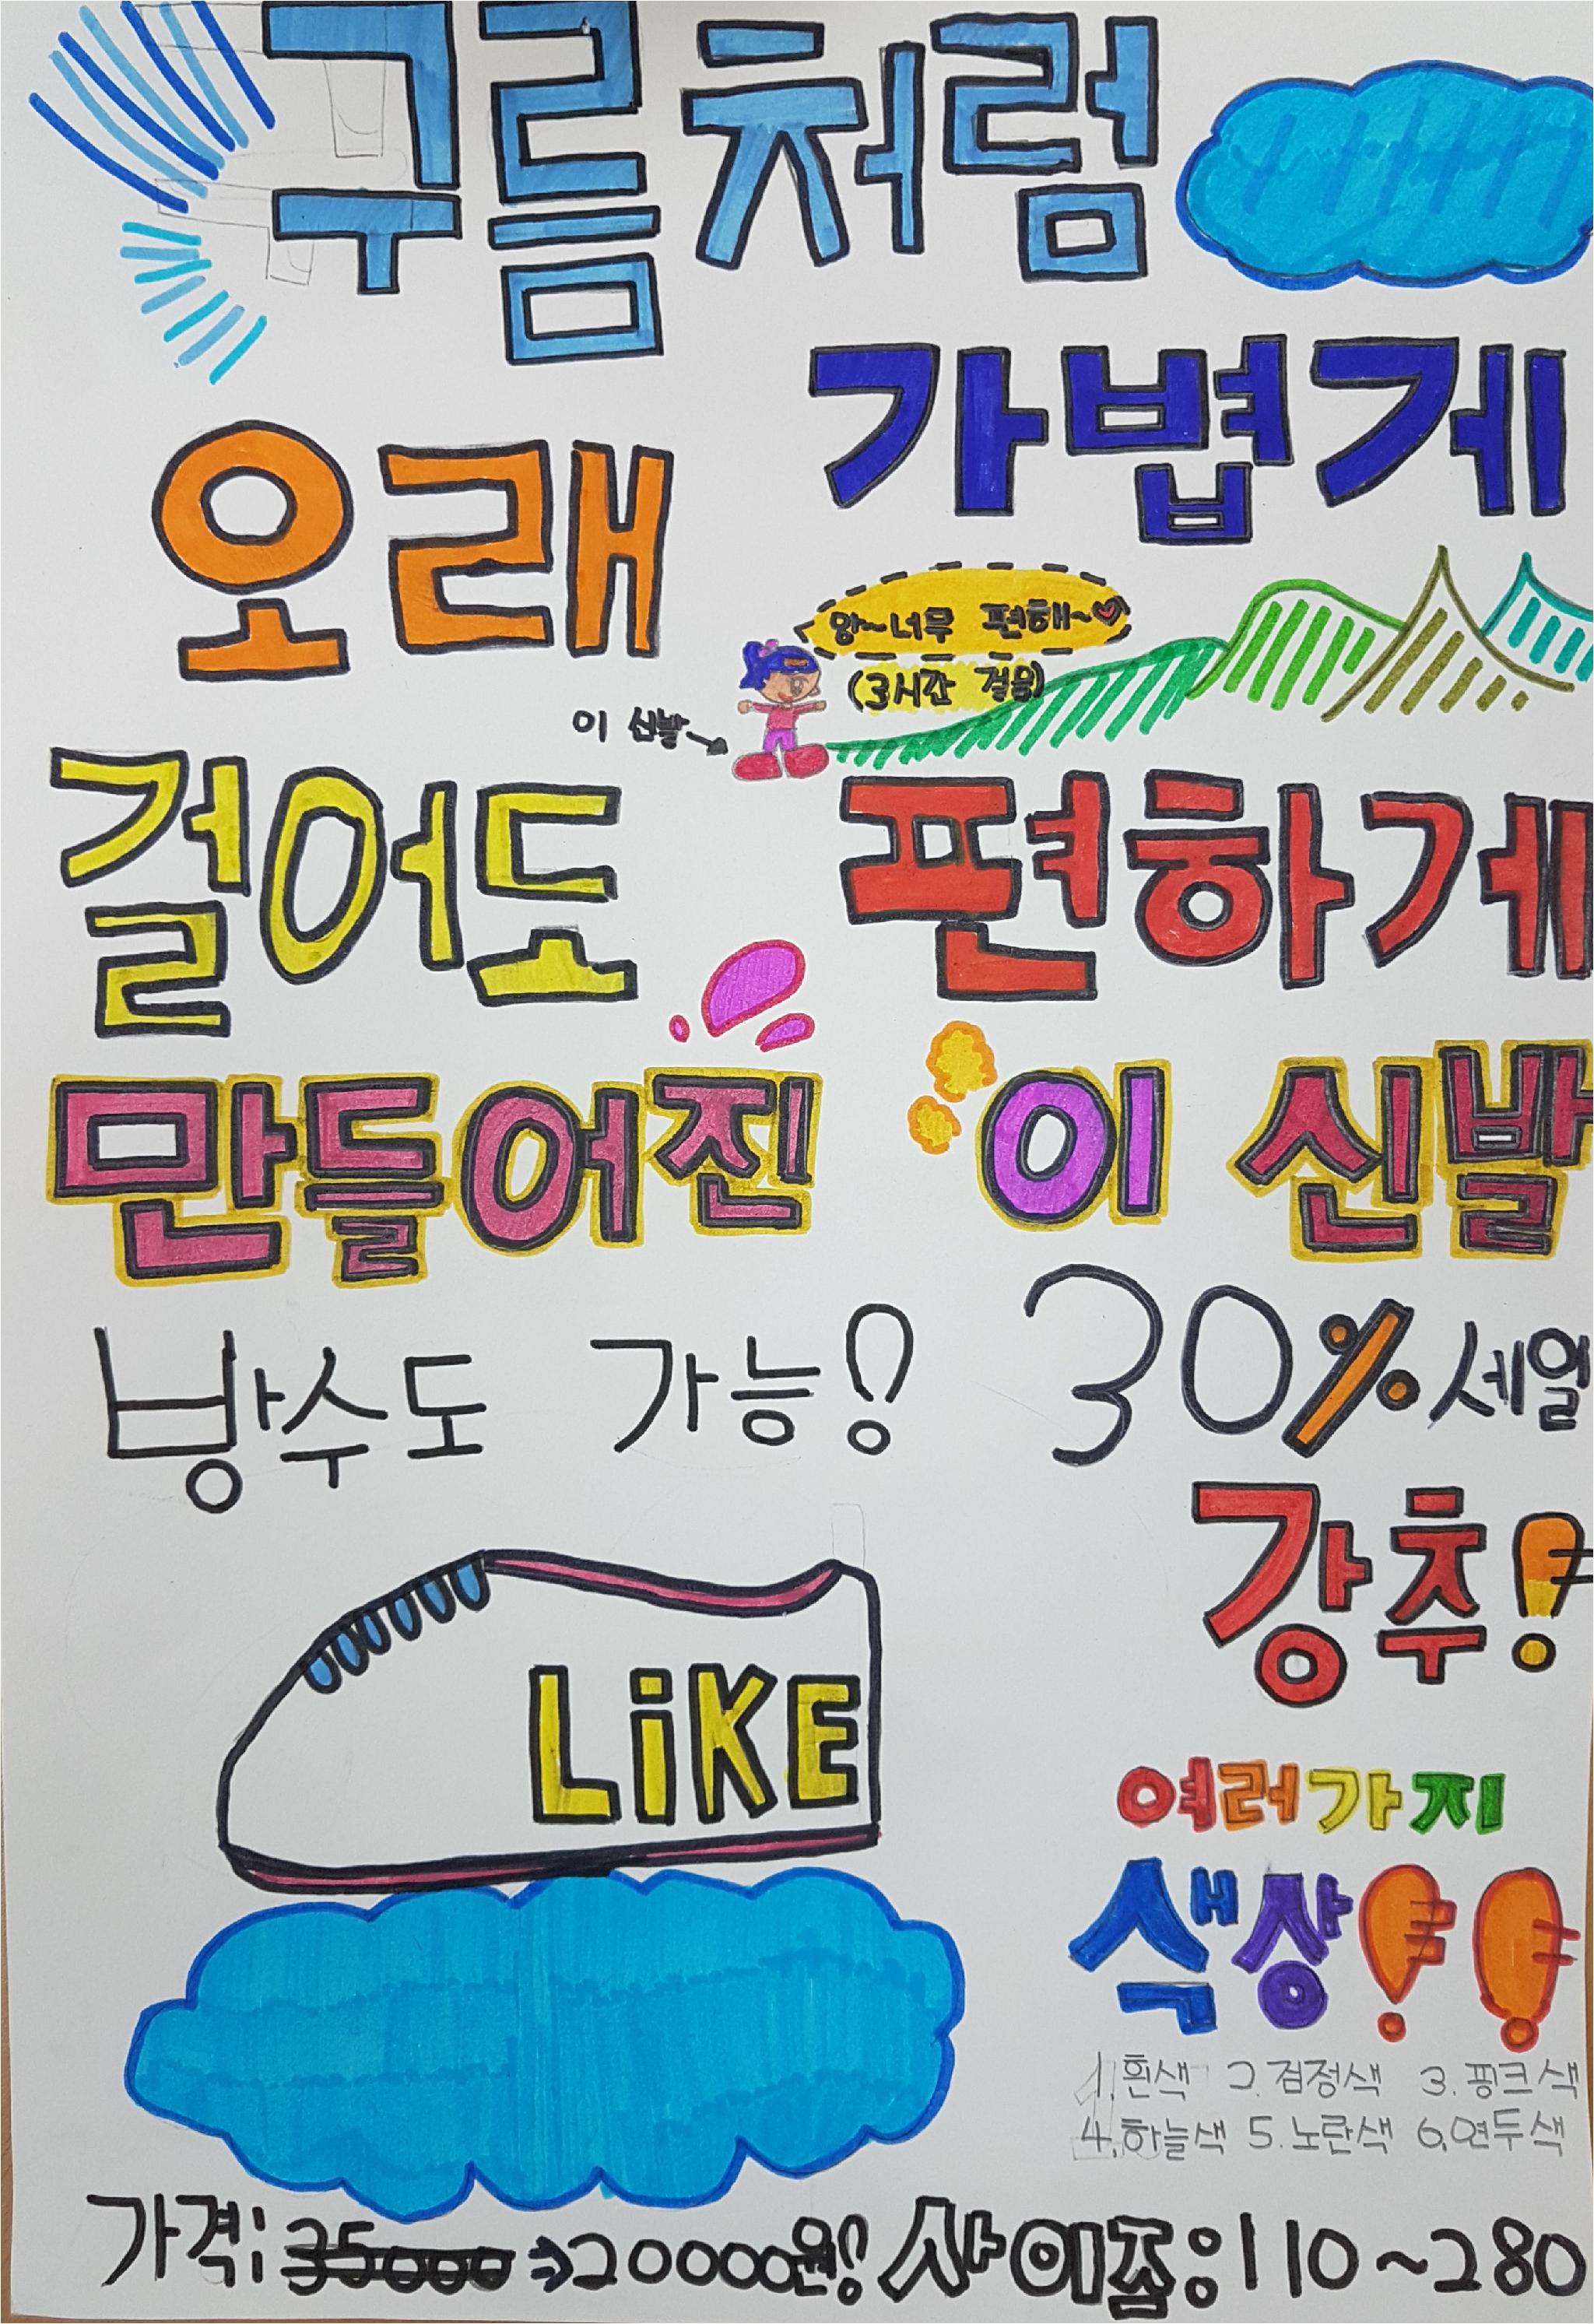 구름처럼
가볍게
오래
앙~너무 편해~♥
(3시간 걸음)
이 신발→
걸어도 편하게
만들어진 이 신발
방수도 가능! 30%세일
강추!
LiKE
여러가지
색상!!
1.흰색 2.검정색 3.핑크색
4.하늘색 5.노란색 6.연두색
가격: 35000⇒20000원! 사이즈:110~280